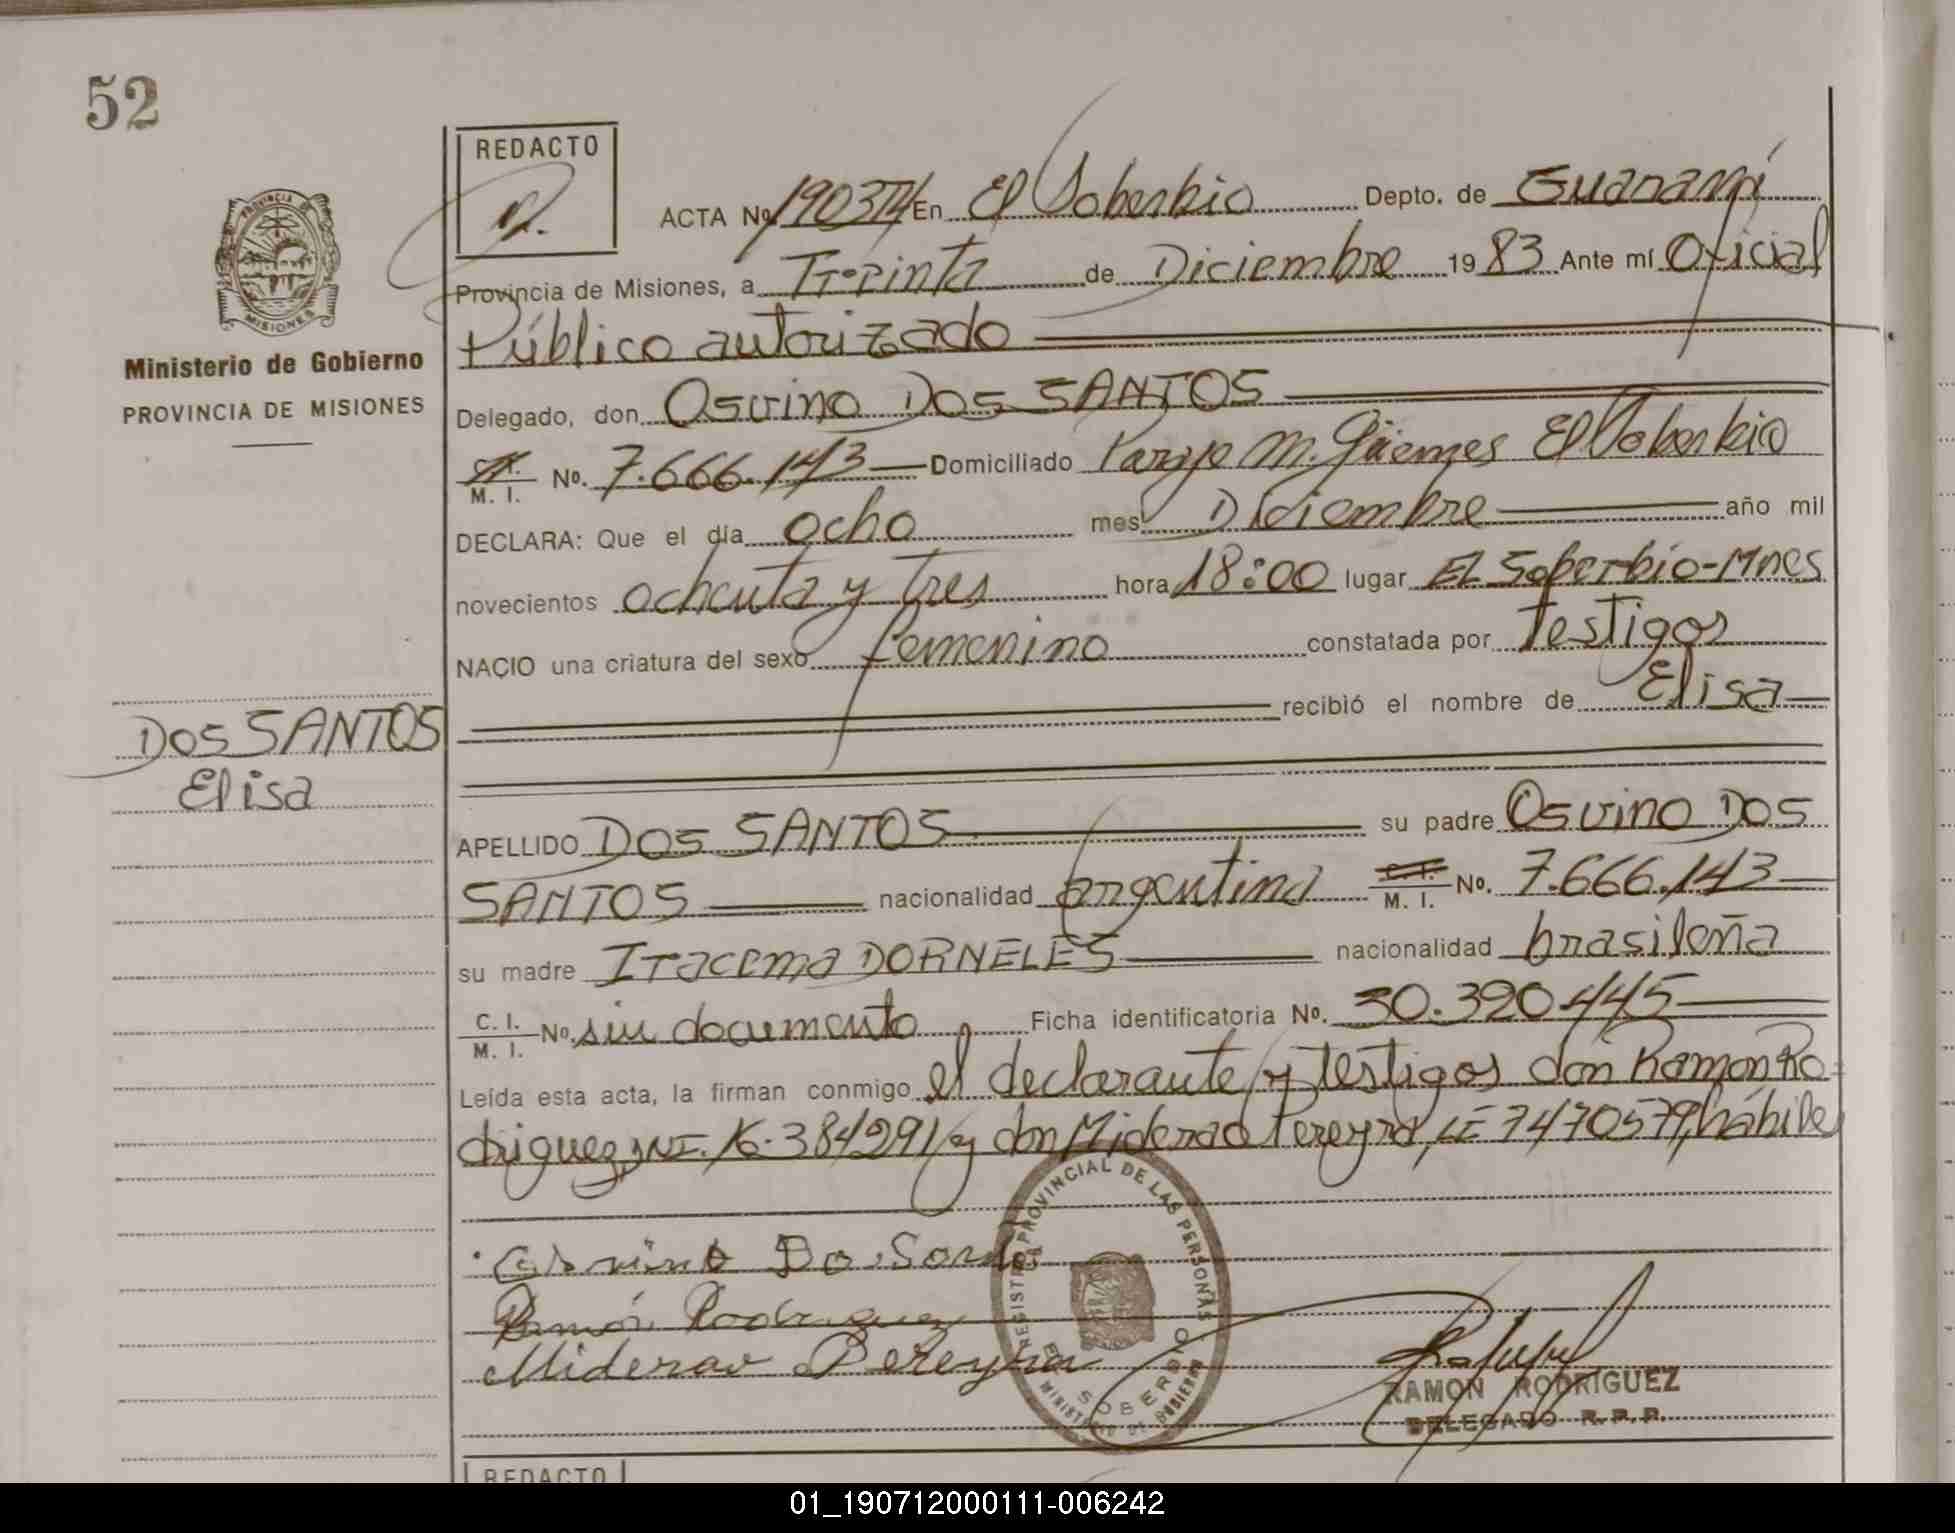 52
REDACTO
PROVINCIA DE
MISIONES
Ministerio de Gobierno
PROVINCIA DE MISIONES
ACTA No 190374 En El Soberbio Depto. de Guaraní
Provincia de Misiones, a Treinta de Diciembre 1983 Ante mí Oficial
Público autorizado
Delegado, don Osvino DOS SANTOS
C. I. M. I. No. 7.666.143 Domiciliado Paraje M. Güemes El Soberbio
DECLARA: Que el día ocho mes Diciembre año mil
novecientos ochenta y tres hora 18:00 lugar El Soberbio-Mnes
NACIO una criatura del sexo femenino constatada por testigos
recibió el nombre de Elisa
DOS SANTOS
Elisa
APELLIDO DOS SANTOS su padre Osvino DOS
SANTOS nacionalidad argentina C. I. M. I. No. 7.666.143
su madre Itacema DORNELES nacionalidad brasileña
C. I. M. I. No. sin documento Ficha identificatoria No. 30.320.445
Leída esta acta, la firman conmigo el declarante y testigos don Ramon Ro-
driguez, 384291 y don Miderao Pereyra, LE 7470579, hábiles
REGISTRO PROVINCIAL DE LAS PERSONAS
EL SOBERBIO
MINISTERIO DE GOBIERNO
Ramón Rodriguez
Miderao Pereyra
RAMON RODRIGUEZ
DELEGADO R.P.P.
REDACTO
01_190712000111-006242